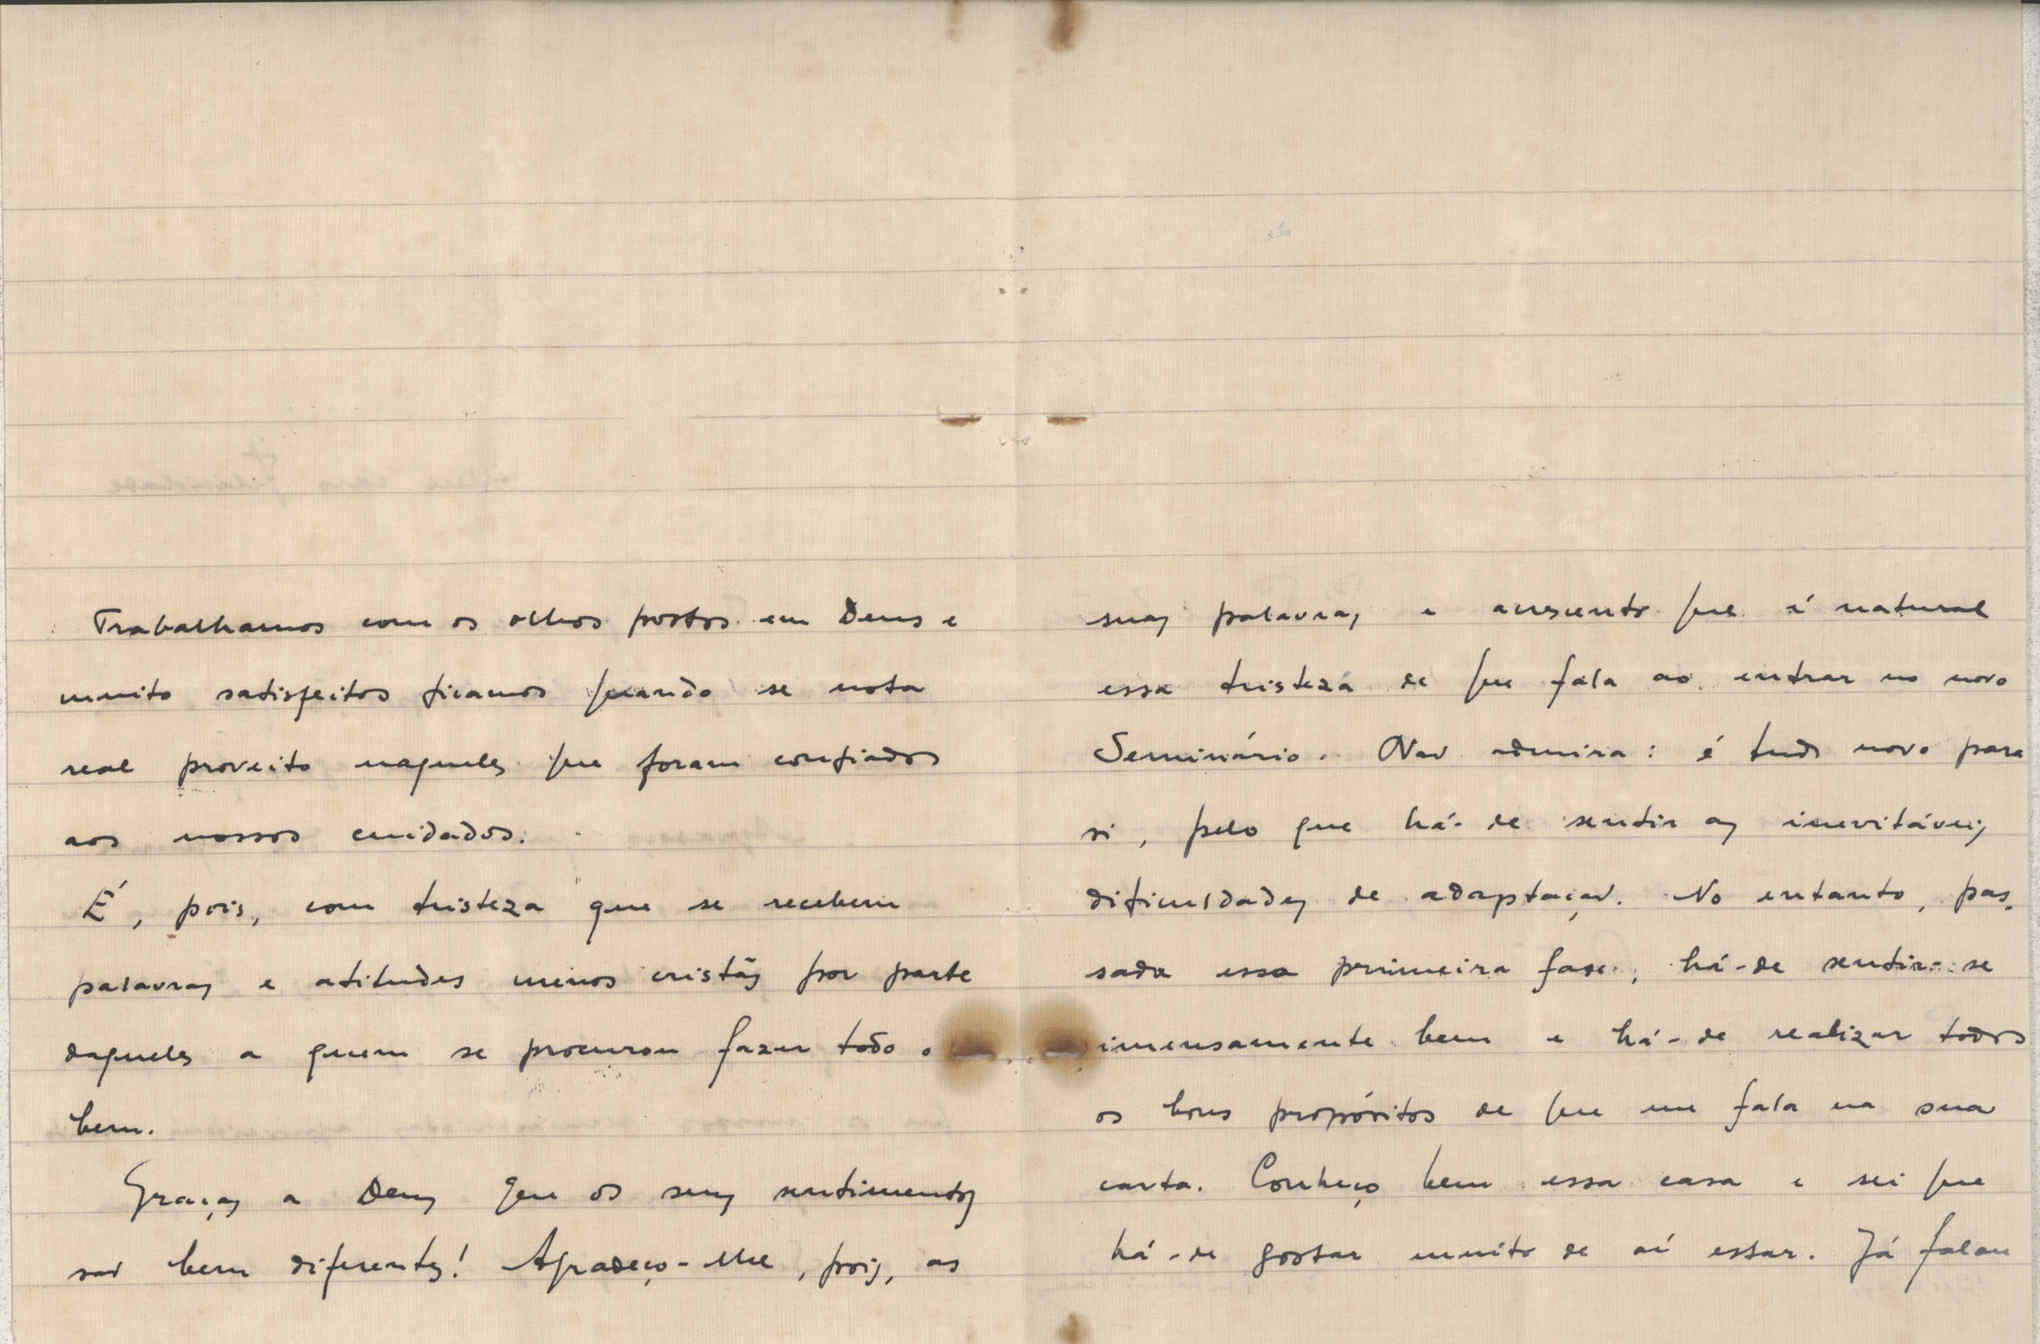 Trabalhamos com os olhos postos em Deus e
muito satisfeitos ficamos quando se nota
real proveito naqueles que foram confiados
aos nossos cuidados.
É, pois, com tristeza que se recebem
palavras e atitudes menos cristãs por parte
daqueles a quem se procurou fazer todo o
bem.
Graças a Deus que os seus sentimentos
são bem diferentes! Agradeço-lhe, pois, as
suas palavras e acrescento que é natural
essa tristeza de que fala ao entrar no novo
Seminário. Não admira: é tudo novo para
si, pelo que há-de sentir as inevitáveis
dificuldades de adaptação. No entanto, pas-
sada essa primeira fase, há-de sentir-se
imensamente bem e há-de realizar todos
os bons propósitos de que me fala na sua
carta. Conheço bem essa casa e sei que
há-de gostar muito de aí estar. Já falou